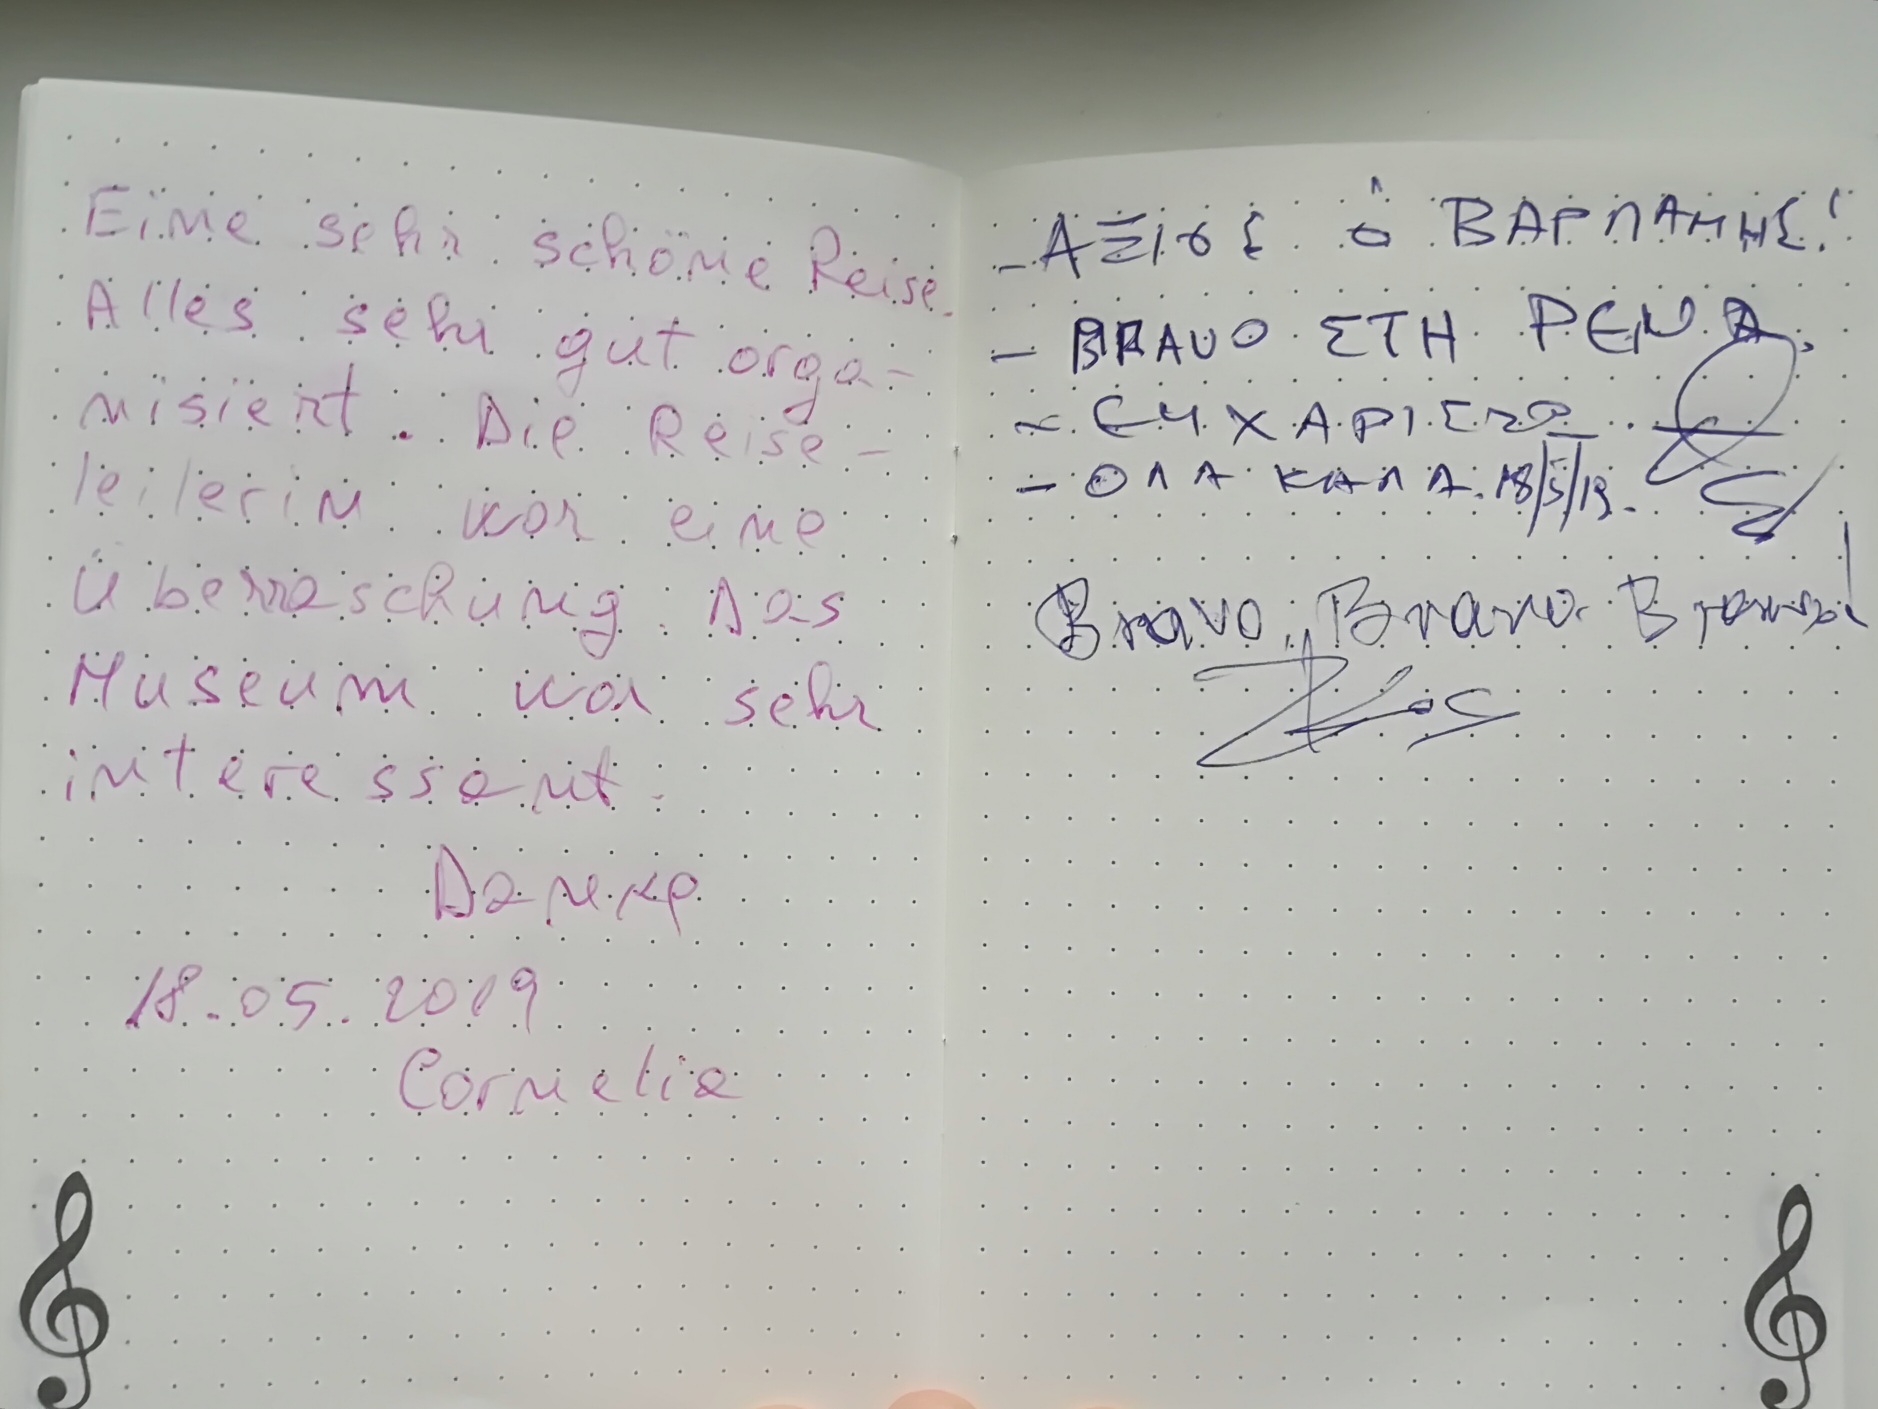 Eine sehr schöne Reise.
Alles sehr gut orga-
nisiert. Die Reise-
leiterin war eine
Überraschung. Das
Museum war sehr
interessant.
Danke
18.05.2019
Cornelia
- ΑΞΙΟΣ ὁ ΒΑΡΛΑΜΗΣ!
- ΒRAVO ΣΤΗ ΡΕΝΑ.
- ΕΥΧΑΡΙΣΤΩ
- ΟΛΑ ΚΑΛΑ. 18/5/19.
Bravo, Bravo Bravo!